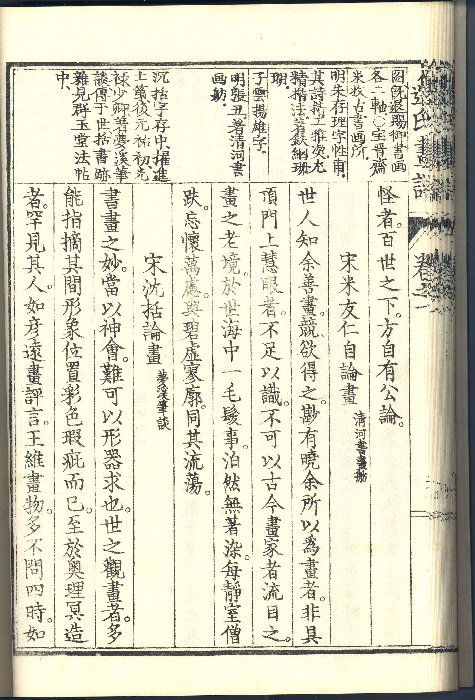 图既退賜御書画
各二軸○宝晋齋
米放古書画所
明朱存理字性甫
其詩精工雅次尤
精楷法著鉄網珊
瑚
子雲揚雄字
明張丑著清河書
画舫
沉括字存中擢進
士第後元祐初光
禄少卿著夢渓筆
談傳于世括書跡
雜見群玉堂法帖
中
怪者百世之下方自有公論
宋米友仁自論畫 清河書畫舫
世人知余善畫競欲得之尠有曉余所以為畫者非具
頂門上慧眼者不足以識不可以古今畫家者流目之
畫之老境於世海中一毛髮事泊然無著染每靜室僧
趺忘懷萬慮與碧虛寥廓同其流蕩
宋沈括論畫 夢溪筆談
書畫之妙當以神會難可以形器求也世之觀畫者多
能指摘其間形象位置彩色瑕疵而已至於奧理冥造
者罕見其人如彦遠畫評言王維畫物多不問四時如